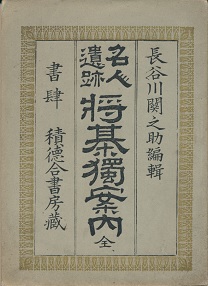 長谷川関之助編輯
名人遺跡
将棊獨案内 全
書肆 積徳合書房藏